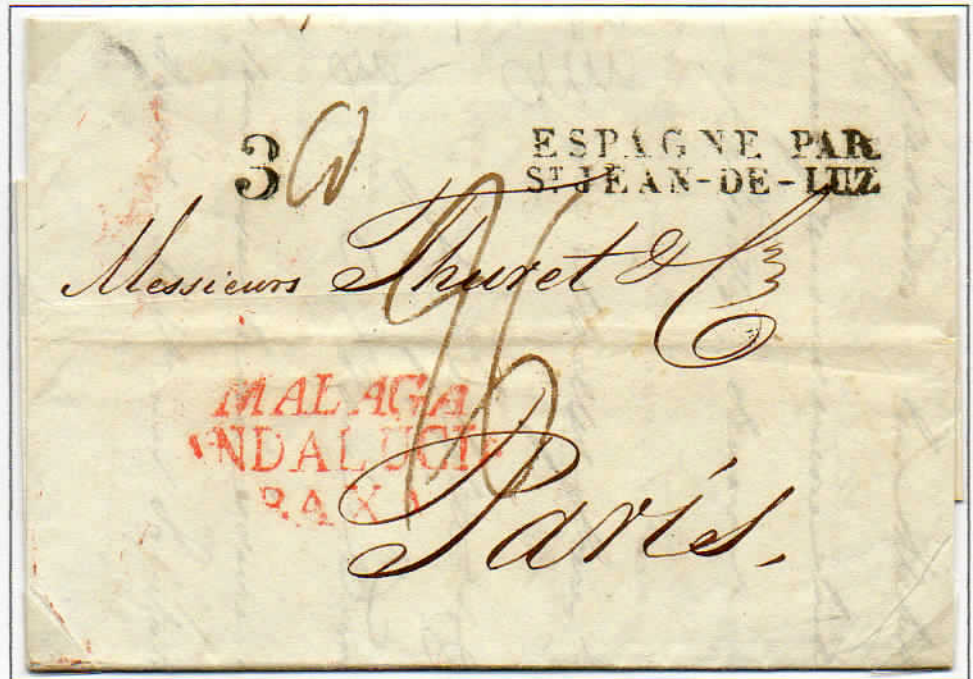 3
ESPAGNE PAR
ST JEAN-DE-LUZ
Messieurs Thuret & Co
MALAGA
ANDALUCIA
BAXA
Paris.